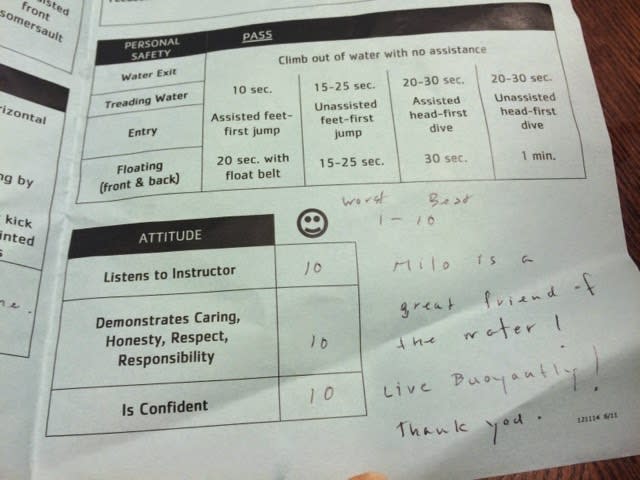 sisted
front
somersault
rizontal
ng by
kick
inted
s
ne.
PERSONAL SAFETY
PASS
Water Exit
Climb out of water with no assistance
Treading Water
10 sec.
15-25 sec.
20-30 sec.
20-30 sec.
Entry
Assisted feet-
first jump
Unassisted
feet-first
jump
Assisted
head-first
dive
Unassisted
head-first
dive
Floating
(front & back)
20 sec. with
float belt
15-25 sec.
30 sec.
1 min.
Worst Best
1 - 10
ATTITUDE
Listens to Instructor
10
Demonstrates Caring,
Honesty, Respect,
Responsibility
10
Is Confident
10
Milo is a
great friend of
the water!
Live Buoyantly!
Thank you.
121114 6/11